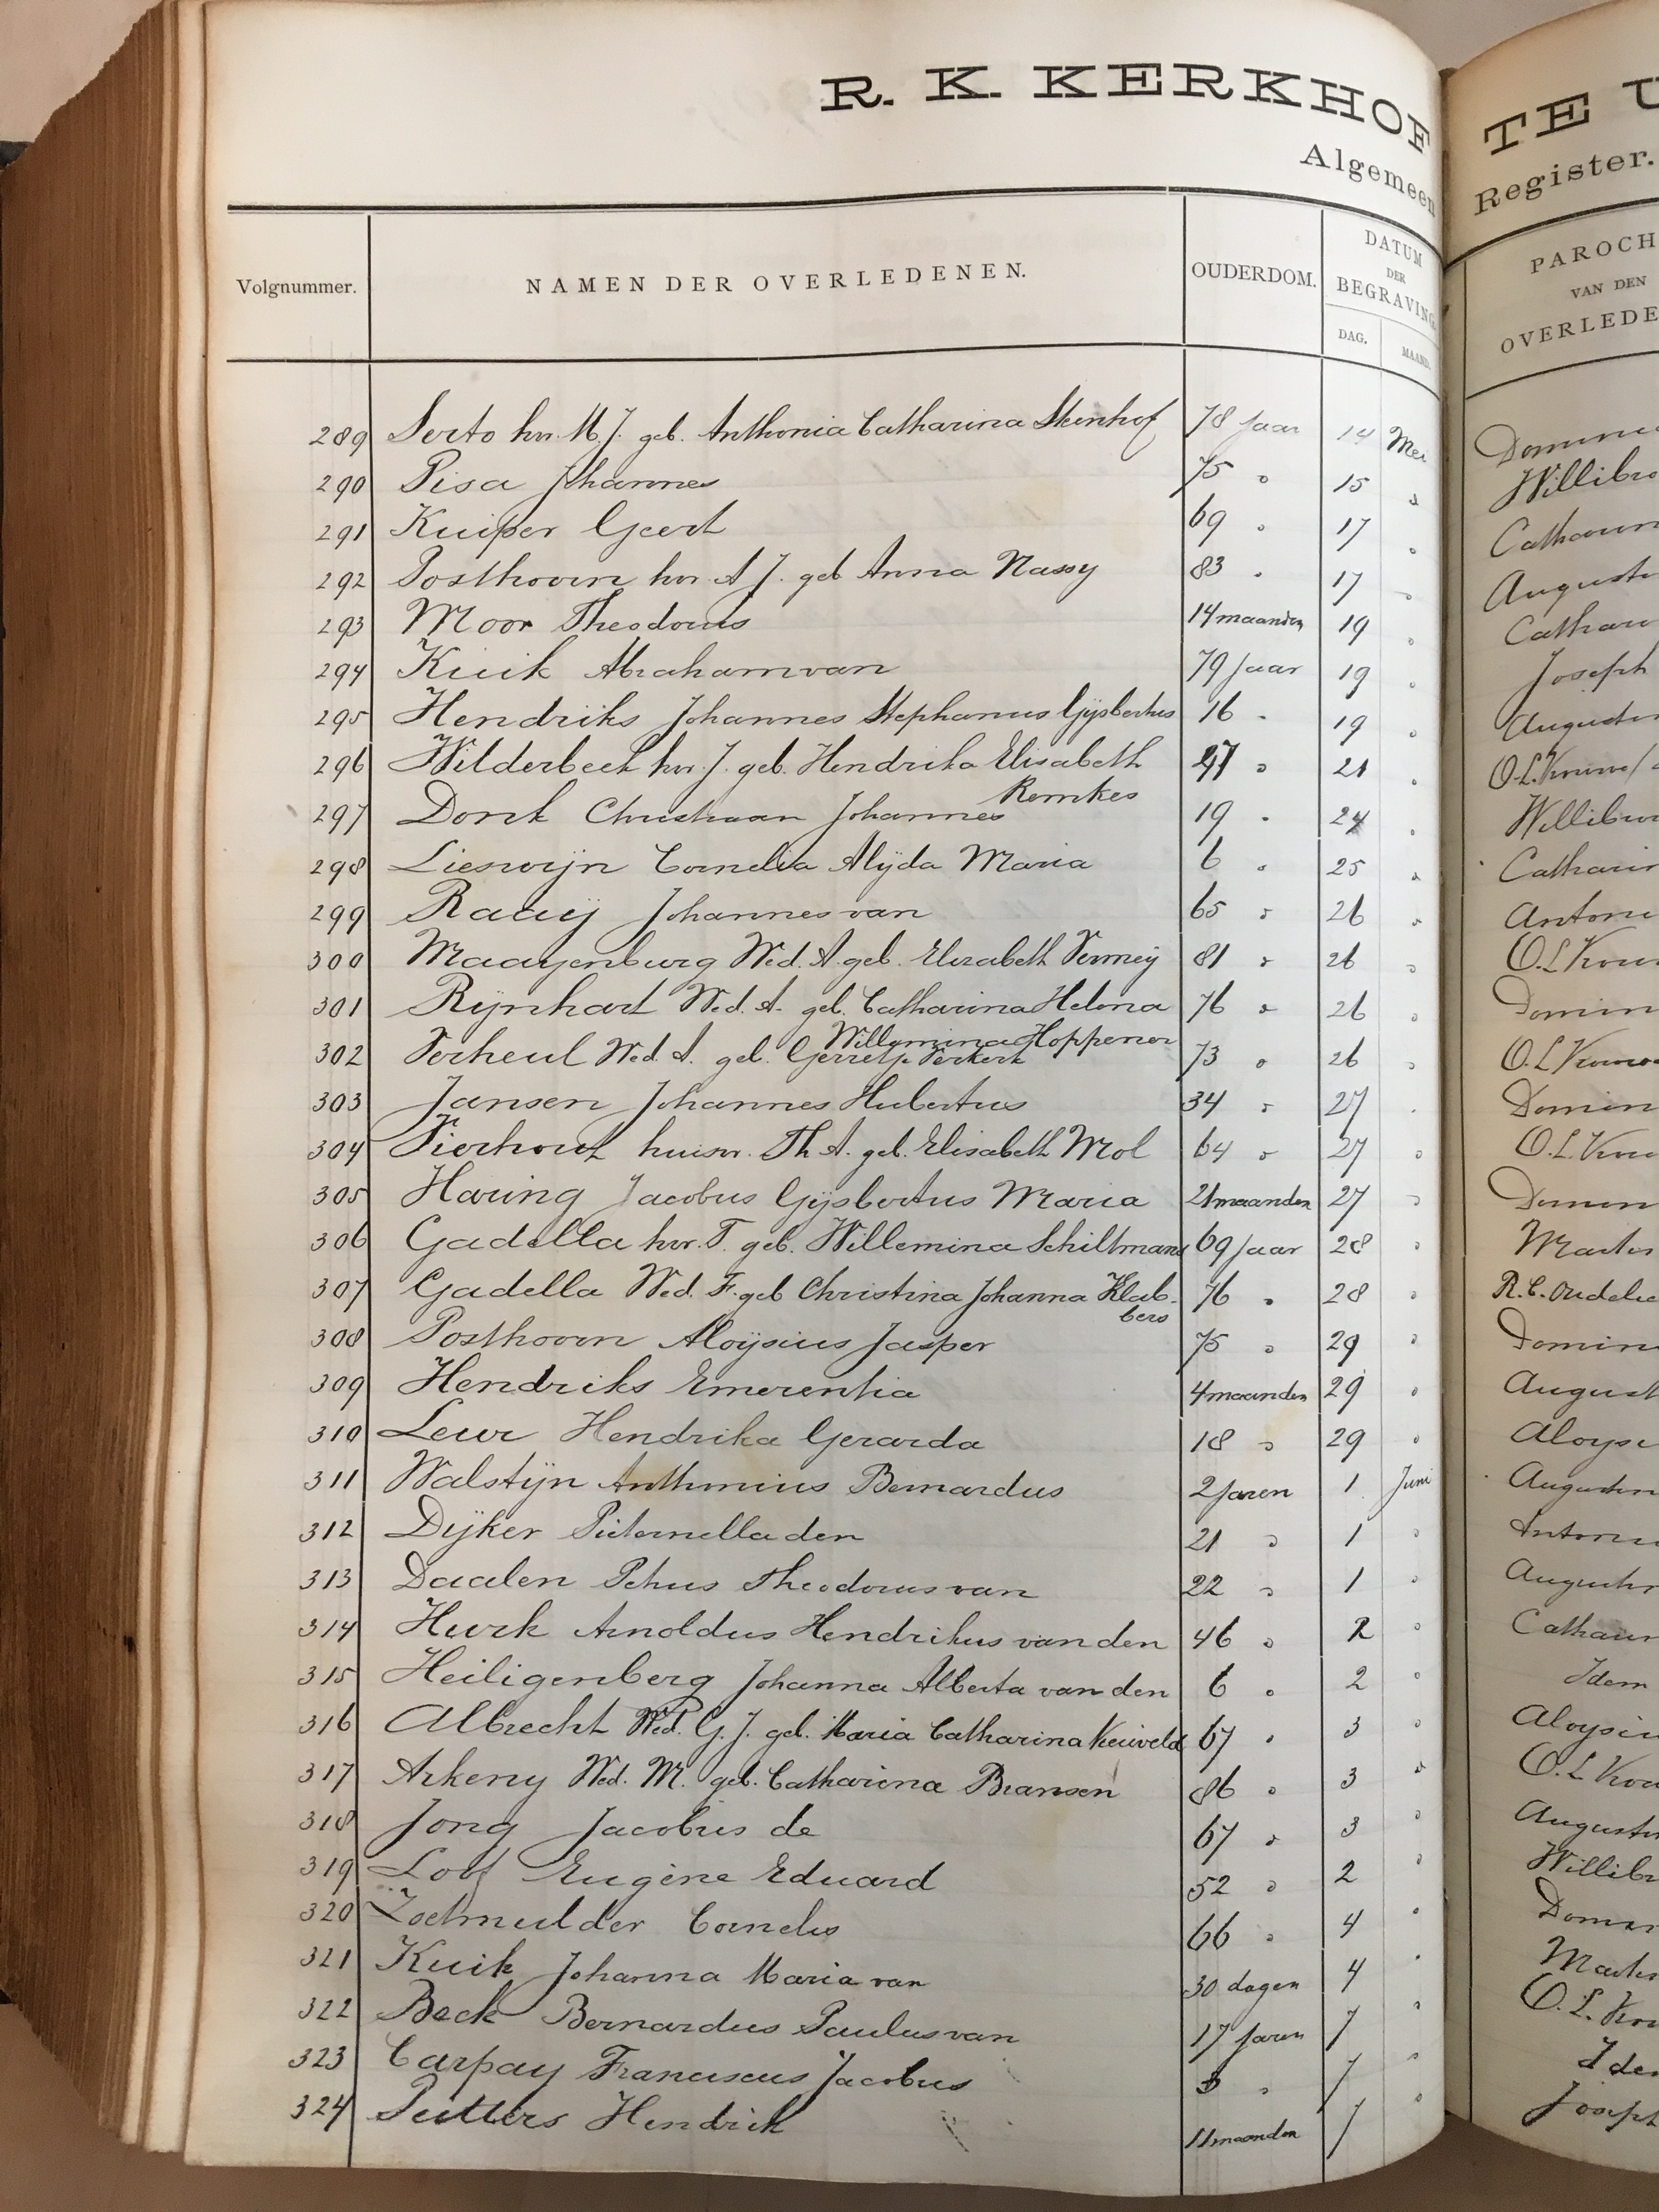 R. K. KERKHOF
Algemeen
Volgnummer. NAMEN DER OVERLEDENEN. OUDERDOM. DATUM DER BEGRAVING
DAG. MAAND.
289 Serto hvr. M. J. geb. Anthonia Catharina Steenhof 78 jaar 14 Mei
290 Pisa Johannes 75 " 15 "
291 Kuiper Geert 69 " 17 "
292 Posthoorn hvr. A J. geb Anna Nassy 83 " 17 "
293 Moor Theodorus 14 maanden 19 "
294 Kuik Abraham van 79 jaar 19 "
295 Hendriks Johannes Stephanus Gijsbertus 16 " 19 "
296 Wilderbeek hvr. J. geb. Hendrika Elisabeth 47 " 21 "
Remkes
297 Donk Christiaan Johannes 19 " 24 "
298 Lieswijn Cornelia Alijda Maria 6 " 25 "
299 Raaij Johannes van 65 " 26 "
300 Maayenburg Wed. A. geb. Elizabeth Vermey 81 " 26 "
301 Rijnhart Wed. A. geb. Catharina Helena 76 " 26 "
Willemina Hoppener
302 Verheul Wed. A. geb. Gerretje Verkerk 73 " 26 "
303 Jansen Johannes Hubertus 34 " 27 "
304 Vierhout huisvr. Th. A. geb. Elisabeth Mol 64 " 27 "
305 Haring Jacobus Gijsbertus Maria 21 maanden 27 "
306 Gadella hvr. T. geb. Willemina Schiltmans 69 jaar 28 "
307 Gadella Wed. F. geb Christina Johanna Klab- 76 " 28 "
bers
308 Posthoorn Aloijsius Jasper 75 " 29 "
309 Hendriks Emerentia 4 maanden 29 "
310 Leur Hendrika Gerarda 18 " 29 "
311 Walstijn Anthonius Bernardus 2 jaren 1 Juni
312 Dijker Pieternella den 21 " 1 "
313 Daalen Petrus Theodorus van 22 " 1 "
314 Hurk Arnoldus Hendrikus van den 46 " 2 "
315 Heiligenberg Johanna Alberta van den 6 " 2 "
316 Albrecht Wed. G. J. geb. Maria Catharina 67 " 3 "
317 Arkeny Wed. M. geb. Catharina Bransen 86 " 3 "
318 Jong Jacobus de 67 " 3 "
319 Loof Eugène Eduard 52 " 2 "
320 Zoetmulder Cornelis 66 " 4 "
321 Kuik Johanna Maria van 30 dagen 4 "
322 Beek Bernardus Paulus van 17 jaren 7 "
323 Carpay Franciscus Jacobus " 7 "
324 Putters Hendrik 11 maanden 7 "
TE U
Register.
PAROCH
VAN DEN
OVERLEDE
Domini
Willibro
Catharin
Augusti
Cathari
Joseph
Augustin
O.L. Vrouw
Willibro
Catharin
Antoni
O.L. Vrou
Domin
O.L. Vrouw
Domin
O.L. Vrou
Domin
Martin
R.C. Oudelie
Domin
August
Aloysi
Augustin
Antoni
Augustin
Catharin
Idem
Aloysiu
O.L. Vrou
Augustin
Willibr
Domin
Martin
O.L. Vrou
Idem
Joseph